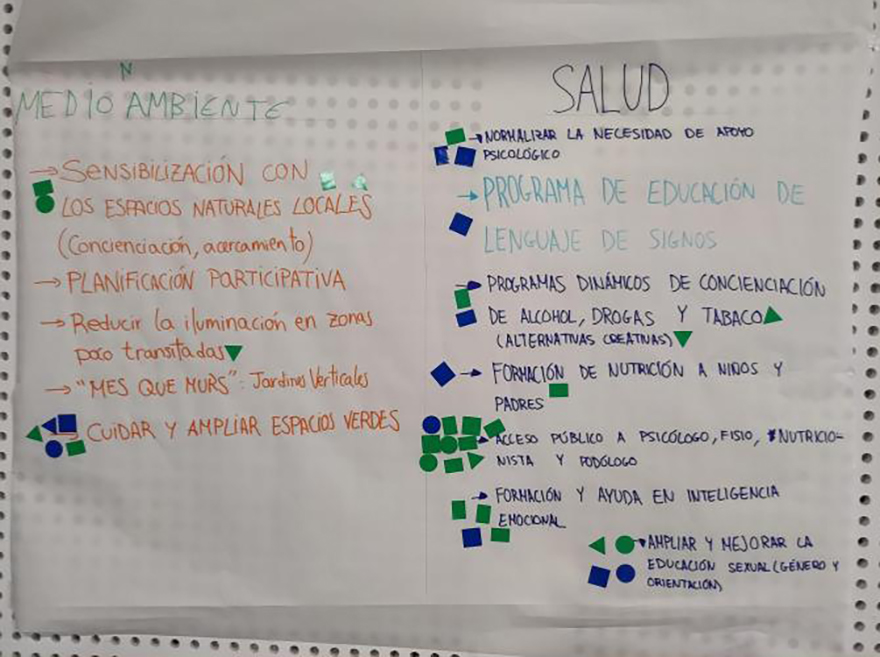 N
MEDIO AMBIENTE
→ SENSIBILIZACIÓN CON
LOS ESPACIOS NATURALES LOCALES
(Concienciación, acercamiento)
→ PLANIFICACIÓN PARTICIPATIVA
→ Reducir la iluminación en zonas
poco transitadas
→ "MES QUE MURS": Jardines Verticales
→ CUIDAR Y AMPLIAR ESPACIOS VERDES
SALUD
→ NORMALIZAR LA NECESIDAD DE APOYO
PSICOLÓGICO
→ PROGRAMA DE EDUCACIÓN DE
LENGUAJE DE SIGNOS
→ PROGRAMAS DINÁMICOS DE CONCIENCIACIÓN
DE ALCOHOL, DROGAS Y TABACO
(ALTERNATIVAS CREATIVAS)
→ FORMACIÓN DE NUTRICIÓN A NIÑOS Y
PADRES
→ ACCESO PÚBLICO A PSICÓLOGO, FISIO, *NUTRICIO-
NISTA Y PODÓLOGO
→ FORMACIÓN Y AYUDA EN INTELIGENCIA
EMOCIONAL
→ AMPLIAR Y MEJORAR LA
EDUCACIÓN SEXUAL (GÉNERO Y
ORIENTACIÓN)